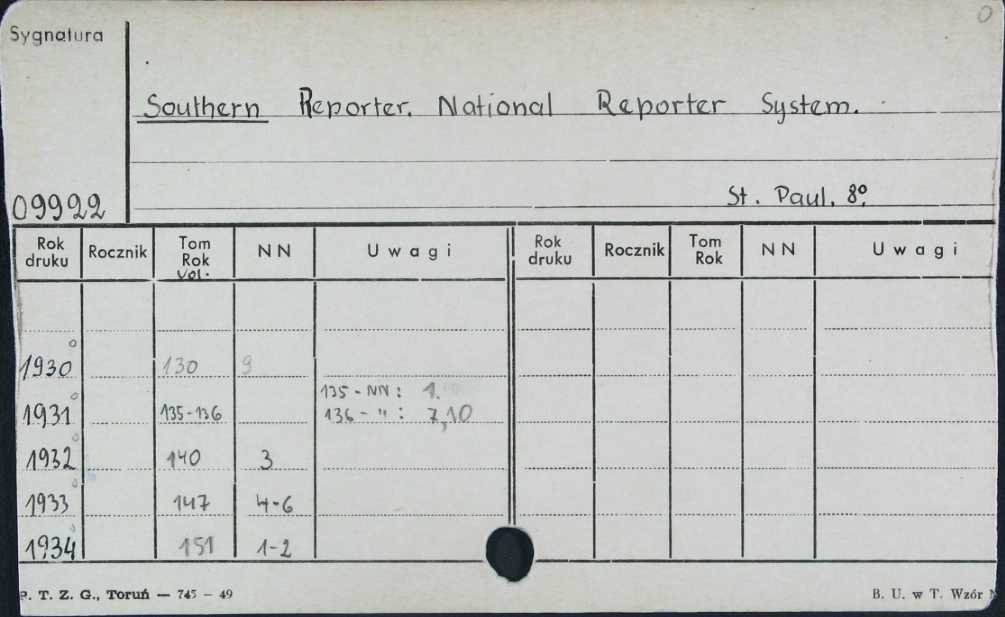 O
Sygnatura
Southern Reporter. National Reporter System.
09922
St. Paul. 8º.
Rok druku Rocznik Tom Rok Vol. NN Uwagi Rok druku Rocznik Tom Rok NN Uwagi
1930 130 9
135 - NN : 1.
1931 135-136 136 - " : 7,10
1932 140 3
1933 147 4-6
1934 151 1-2
P. T. Z. G., Toruń — 745 – 49
B. U. w T. Wzór